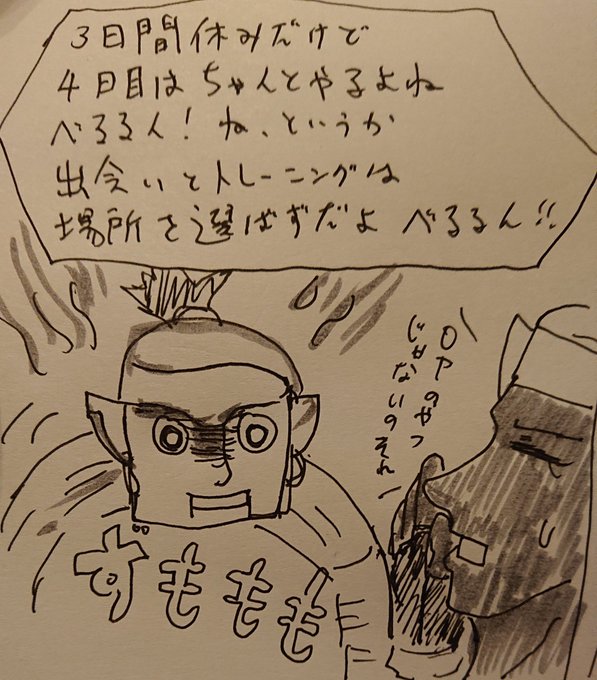 3日間休みだけで
4日目はちゃんとやるよね
べるるん!ね、というか
出会いとトレーニングは
場所を選ばずだよ べるるん!!
のやつ
じゃないのそれ
ずももも